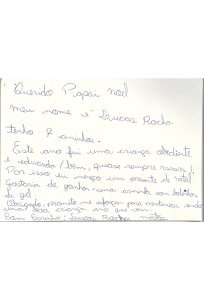 Querido Papai Noel
meu nome é Lucas Rocha
tenho 7 aninhos.
Este ano fui uma criança obediente
e educado (bem, quase sempre rsrsrs).
Por isso eu mereço um presente de natal.
Gostaria de ganhar uma camisa com
de gol.
Obrigado, prometo me esforçar para continuar sendo
uma boa criança ano que vem.
Com carinho: Lucas Rocha